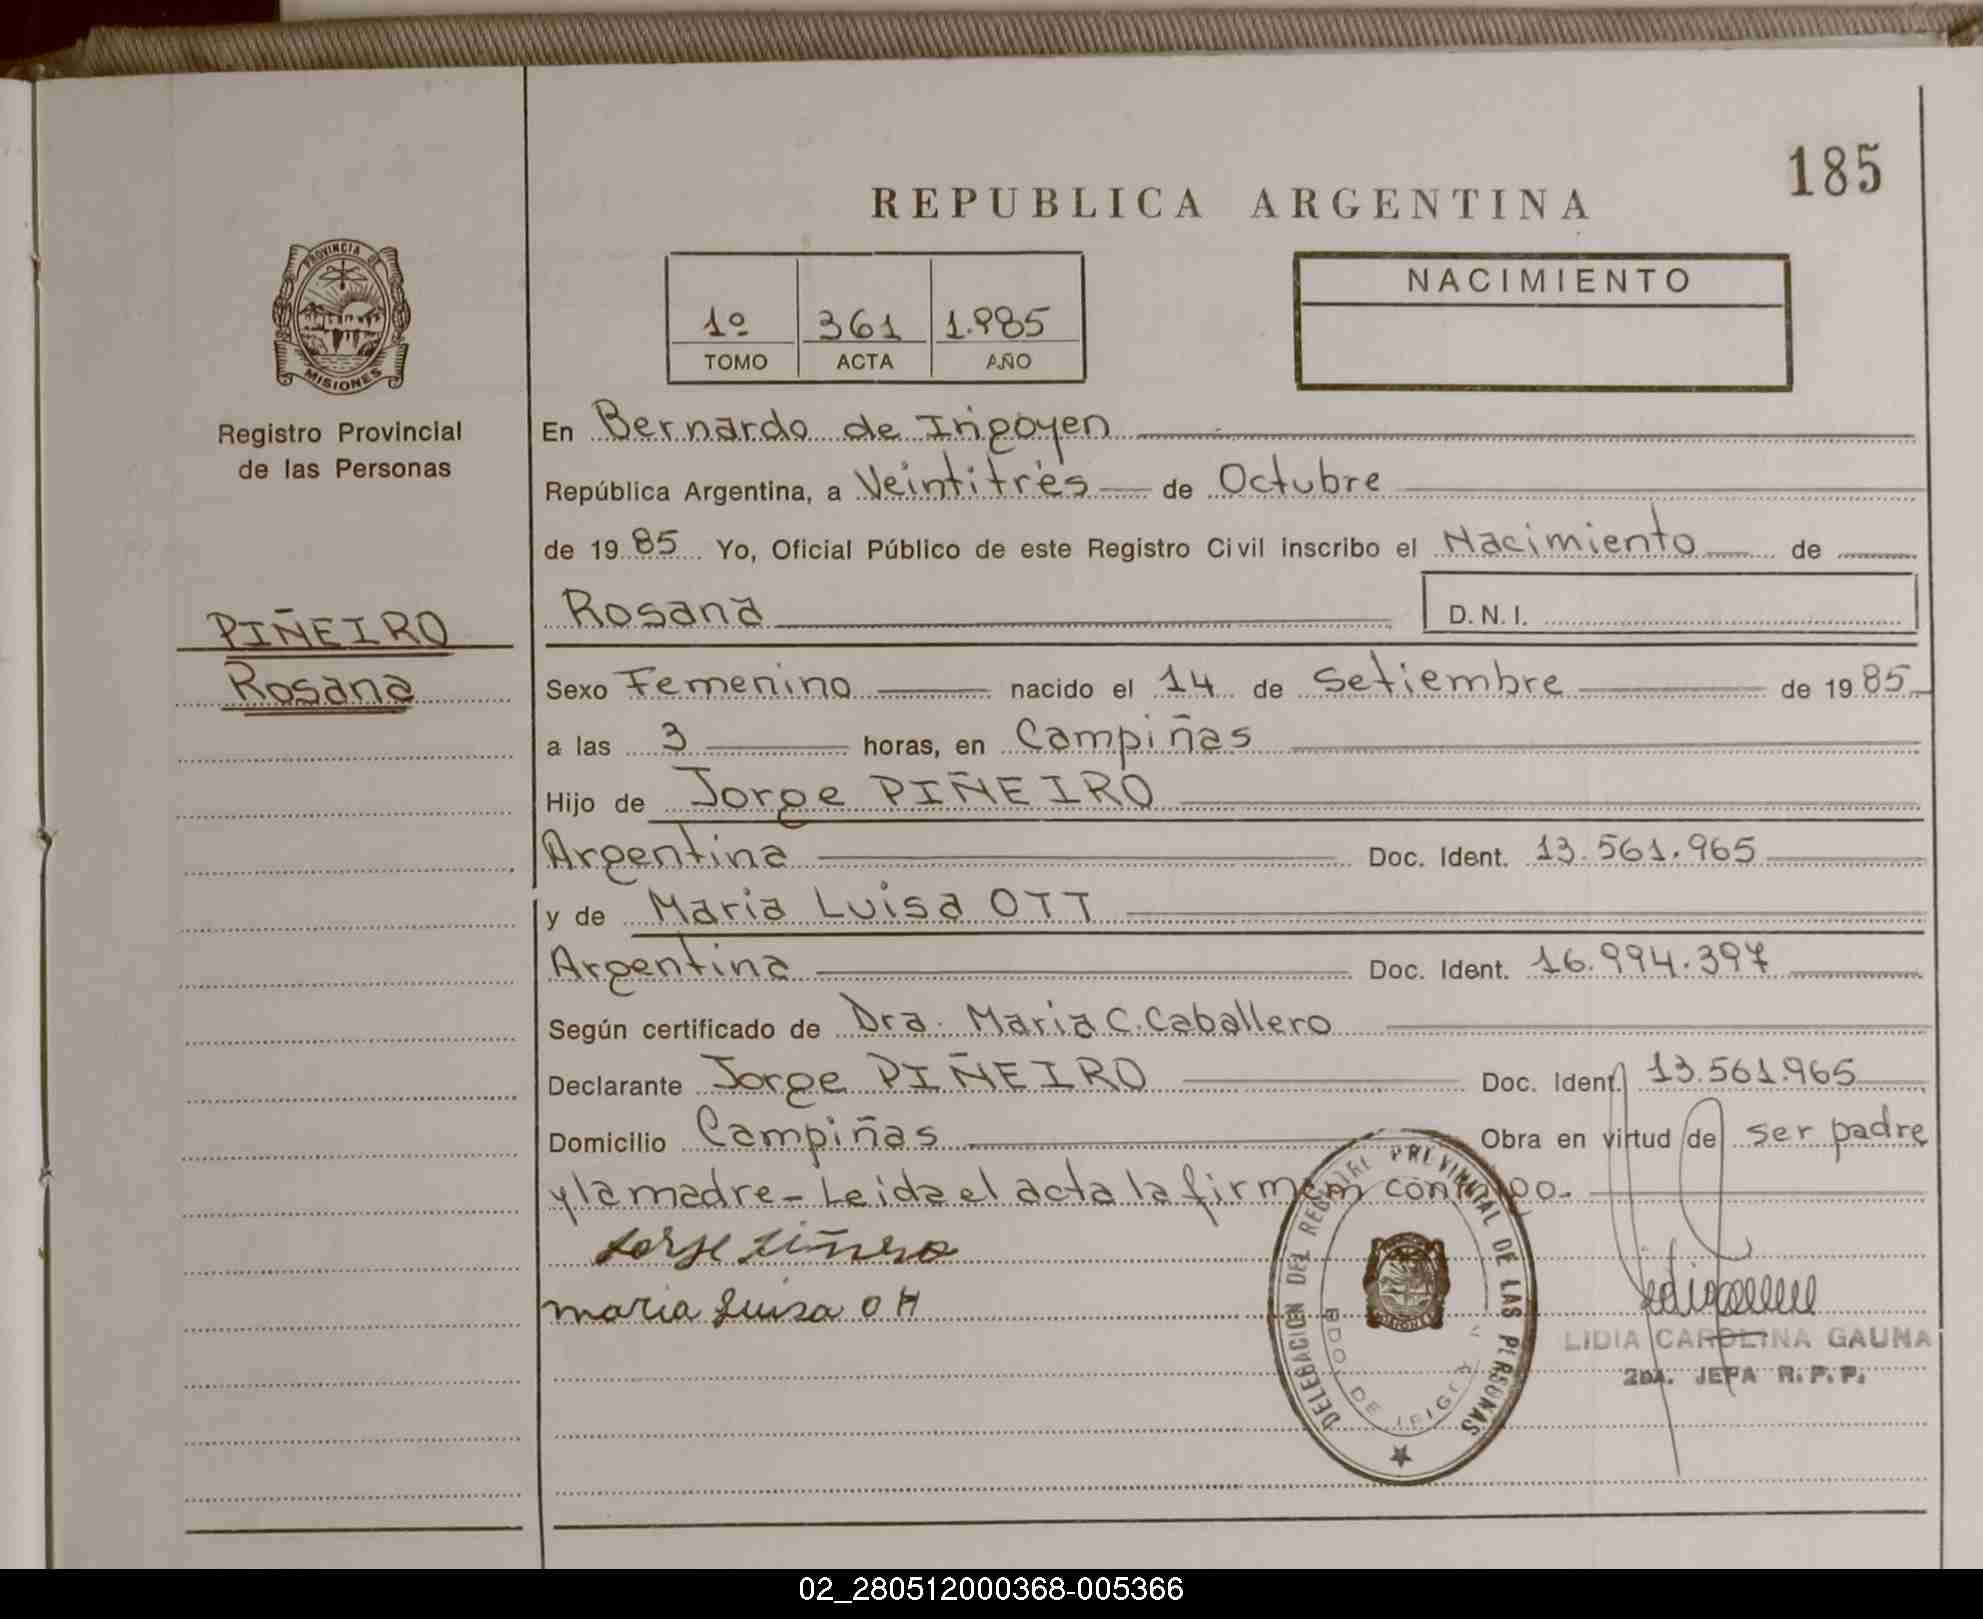 185
REPUBLICA ARGENTINA
PROVINCIA DE
MISIONES
Registro Provincial
de las Personas
1º 361 1.985
TOMO ACTA AÑO
NACIMIENTO
En Bernardo de Irigoyen
República Argentina, a Veintitrés de Octubre
de 19 85 Yo, Oficial Público de este Registro Civil inscribo el Nacimiento de
Rosana D.N.I.
PIÑEIRO
Rosana
Sexo Femenino nacido el 14 de Setiembre de 19 85
a las 3 horas, en Campiñas
Hijo de Jorge PIÑEIRO
Argentina Doc. Ident. 13.561.965
y de Maria Luisa OTT
Argentina Doc. Ident. 16.994.397
Según certificado de Dra. Maria C. Caballero
Declarante Jorge PIÑEIRO Doc. Ident. 13.561.965
Domicilio Campiñas Obra en virtud de ser padre
y la madre - Leida el acta la firman conmigo.
Jorge Piñero
maria Luisa Ott
DELEGACION DEL REGISTRO PROVINCIAL DE LAS PERSONAS
BDO DE
MISIONES
LIDIA CAROLINA GAUNA
2DA. JEFA R.P.P.
02_280512000368-005366